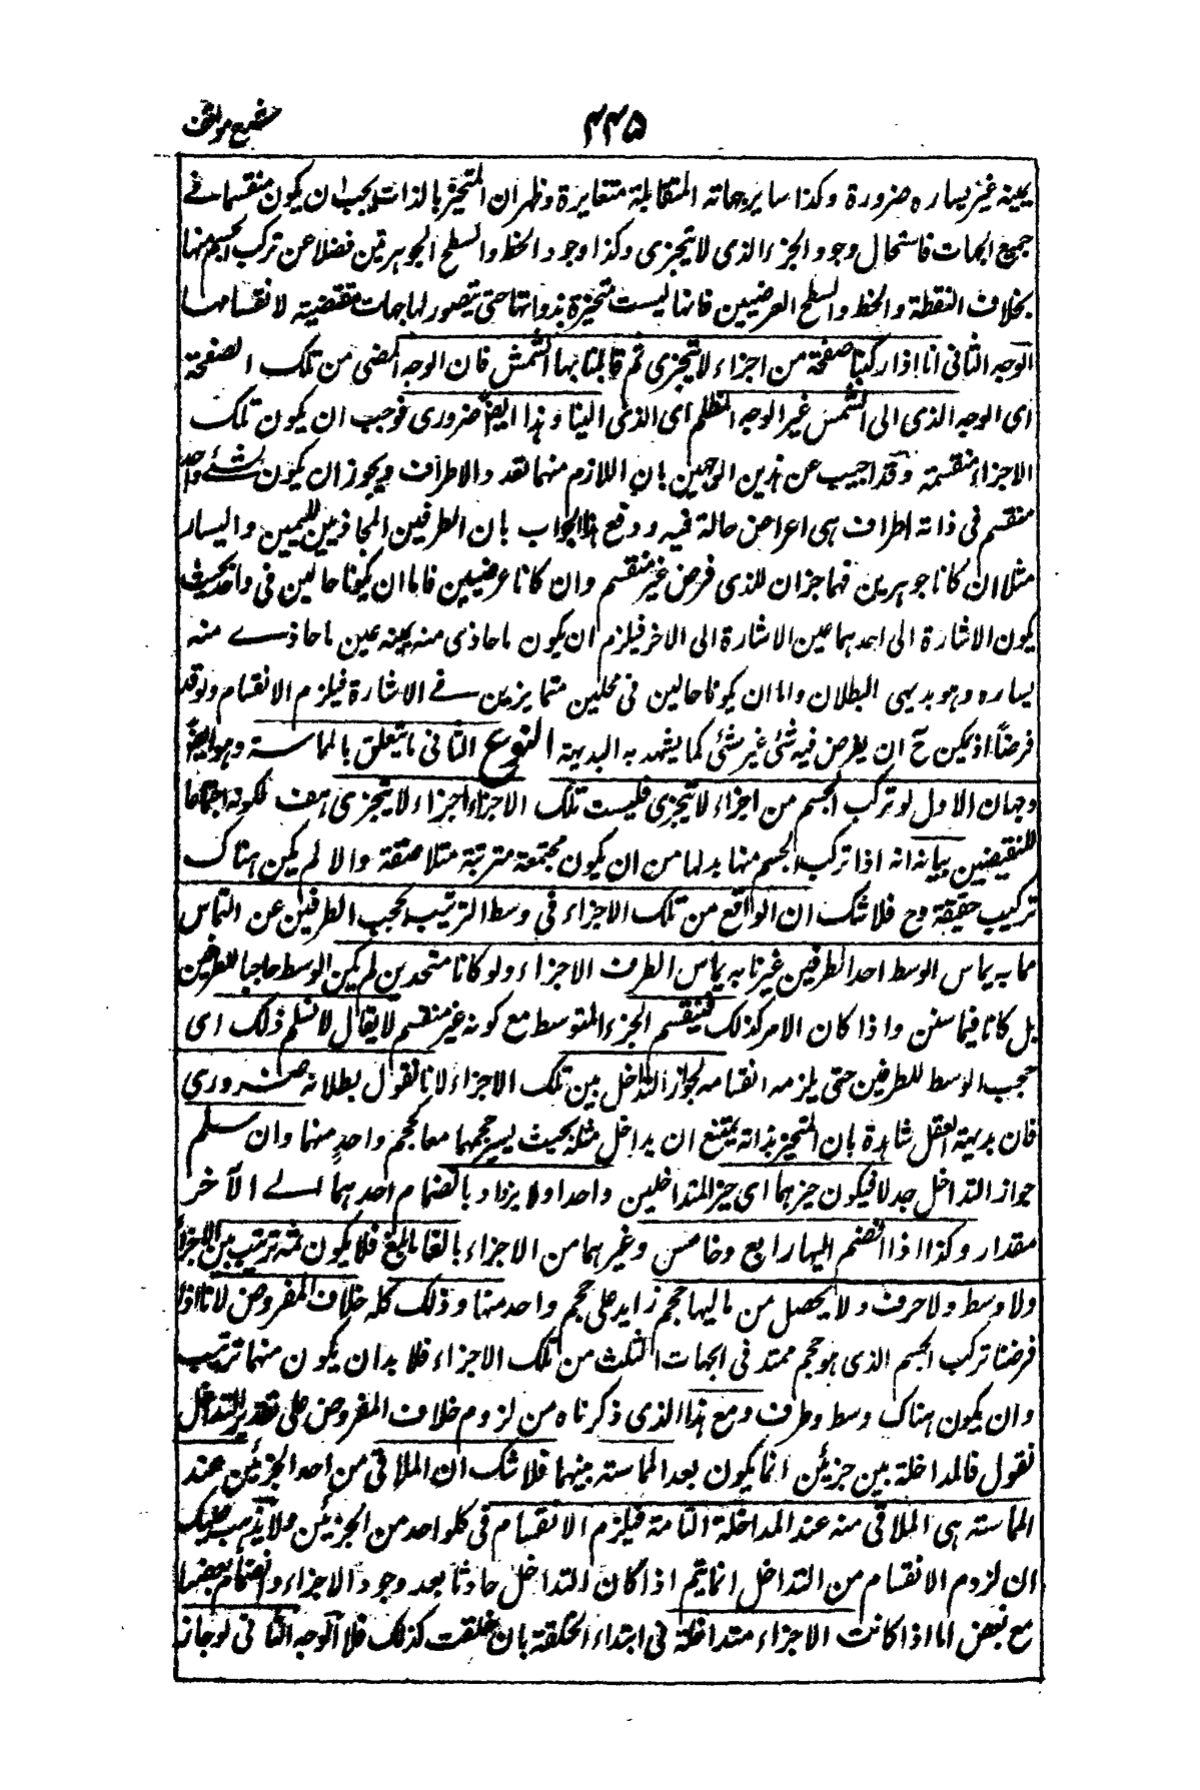 ۴۴۵
يمينه غير يساره ضرورة وكذا ساير جهاته المتقابلة متغايرة وظهر ان المتحيز بالذات يجب ان يكون منقسما فے
جميع الجهات فاستحال وجود الجزء الذى لا يتجزى وكذا وجود الخط والسطح الجوهرين فضلا عن تركب الجسم منها
بخلاف النقطة والخط والسطح العرضيين فانها ليست متحيزة بذواتها حتى يتصور لها جهات مقتضية لانقسامها
الوجه الثانى انا اذا ركبنا صفحة من اجزاء لا تتجزى ثم قابلنا بها الشمس فان الوجه المضى من تلك الصفحة
اى الوجه الذى الى الشمس غير الوجه المظلم اى الذى الينا وهذا ايضا ضرورى فوجب ان يكون تلك
الاجزاء منقسمة وقد اجيب عن هذين الوجهين بان اللازم منهما تعدد الاطراف ويجوز ان يكون لشئ واحد
منقسم فى ذاته اطراف هى اعراض حالة فيه ودفع هذا الجواب بان الطرفين المحاذيين لليمين واليسار
مثلا ان كانا جوهرين فهما جزان للذى فرض غير منقسم وان كانا عرضيين فاما ان يكونا حالين فى واحد بحيث
يكون الاشارة الى احدهما عين الاشارة الى الاخر فيلزم ان يكون ما حاذى منه يمينه عين ما حاذے منه
يساره وهو بديهى البطلان واما ان يكونا حالين فى محلين متمايزين فے الاشارة فيلزم الانقسام ولو
فرضا اذ يمكن ح ان يفرض فيه شئ غير شئ كما يشهد به البديهة النوع الثانى ما يتعلق بالمماسة وهو ايضا
وجهان الاول لو تركب الجسم من اجزاء لا تتجزى فليست تلك الاجزاء اجزاء لا يتجزى هف لكونه اجتماعا
للنقيضين بيانه انه اذا تركب الجسم منها بد لها من ان يكون مجتمعة مترتبة متلاصقة والا لم يكن هناك
تركيب حقيقة وح فلا شك ان الواقع من تلك الاجزاء فى وسط الترتيب يحجب الطرفين عن التماس
فما به يماس الوسط احد الطرفين غير ما به يماس الطرف الاجزاء ولو كانا متحدين لم يكن الوسط حاجبا للطرفين
بل كانا فيماسنن واذا كان الامر كذلك فينقسم الجزء المتوسط مع كونه غير منقسم لا يقال لا نسلم ذلك اى
حجب الوسط للطرفين حتى يلزمه انقسامه لجواز التداخل بين تلك الاجزاء لانا نقول بطلانه ضرورى
فان بديهة العقل شاهدة بان المتحيز بذاته يمتنع ان يداخل مثله بحيث يسير حجمهما معا كحجم واحد منهما وان سلم
جواز التداخل جدلا فيكون حيزهما اى حيز المتداخلين واحدا ولا يزداد بانضمام احدهما الے الآخر
مقدار وكذا اذا انضم اليها رابع وخامس وغيرهما من الاجزاء بالغا ما بلغ فلا يكون ثمه ترتيب بين الاجزاء
ولا وسط ولا حرف ولا يحصل من تاليها حجم زايد على حجم واحد منها وذلك كله خلاف المفروض لانا اذا
فرضنا تركب الجسم الذى هو حجم ممتد فى الجهات الثلث من تلك الاجزاء فلا بد ان يكون منها ترتيب
وان يكون هناك وسط وطرف ومع هذا الذى ذكرناه من لزوم خلاف المفروض على تقدير التداخل
نقول فالمداخلة بين جزئين انما يكون بعد المماسة بينهما فلا شك ان الملاقى من احد الجزئين عند
المماسته هى الملاقى منه عند المداخلة التامة فيلزم الانقسام فى كلواحد من الجزئين ولا يذهب عليك
ان لزوم الانقسام من التداخل انما يتم اذا كان التداخل حادثا بعد وجود الاجزاء وانضمام بعضها
مع بعض اما اذا كانت الاجزاء متداخلة فى ابتداء الخلقة بان خلقت كذلك فلا الوجه الثانى لو جاز